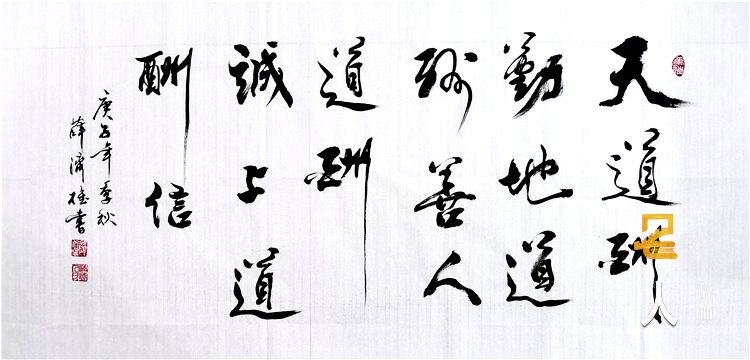 天道酬
勤地道
酬善人
道酬
誠上道
酬信
庚子年季秋
薛濟書